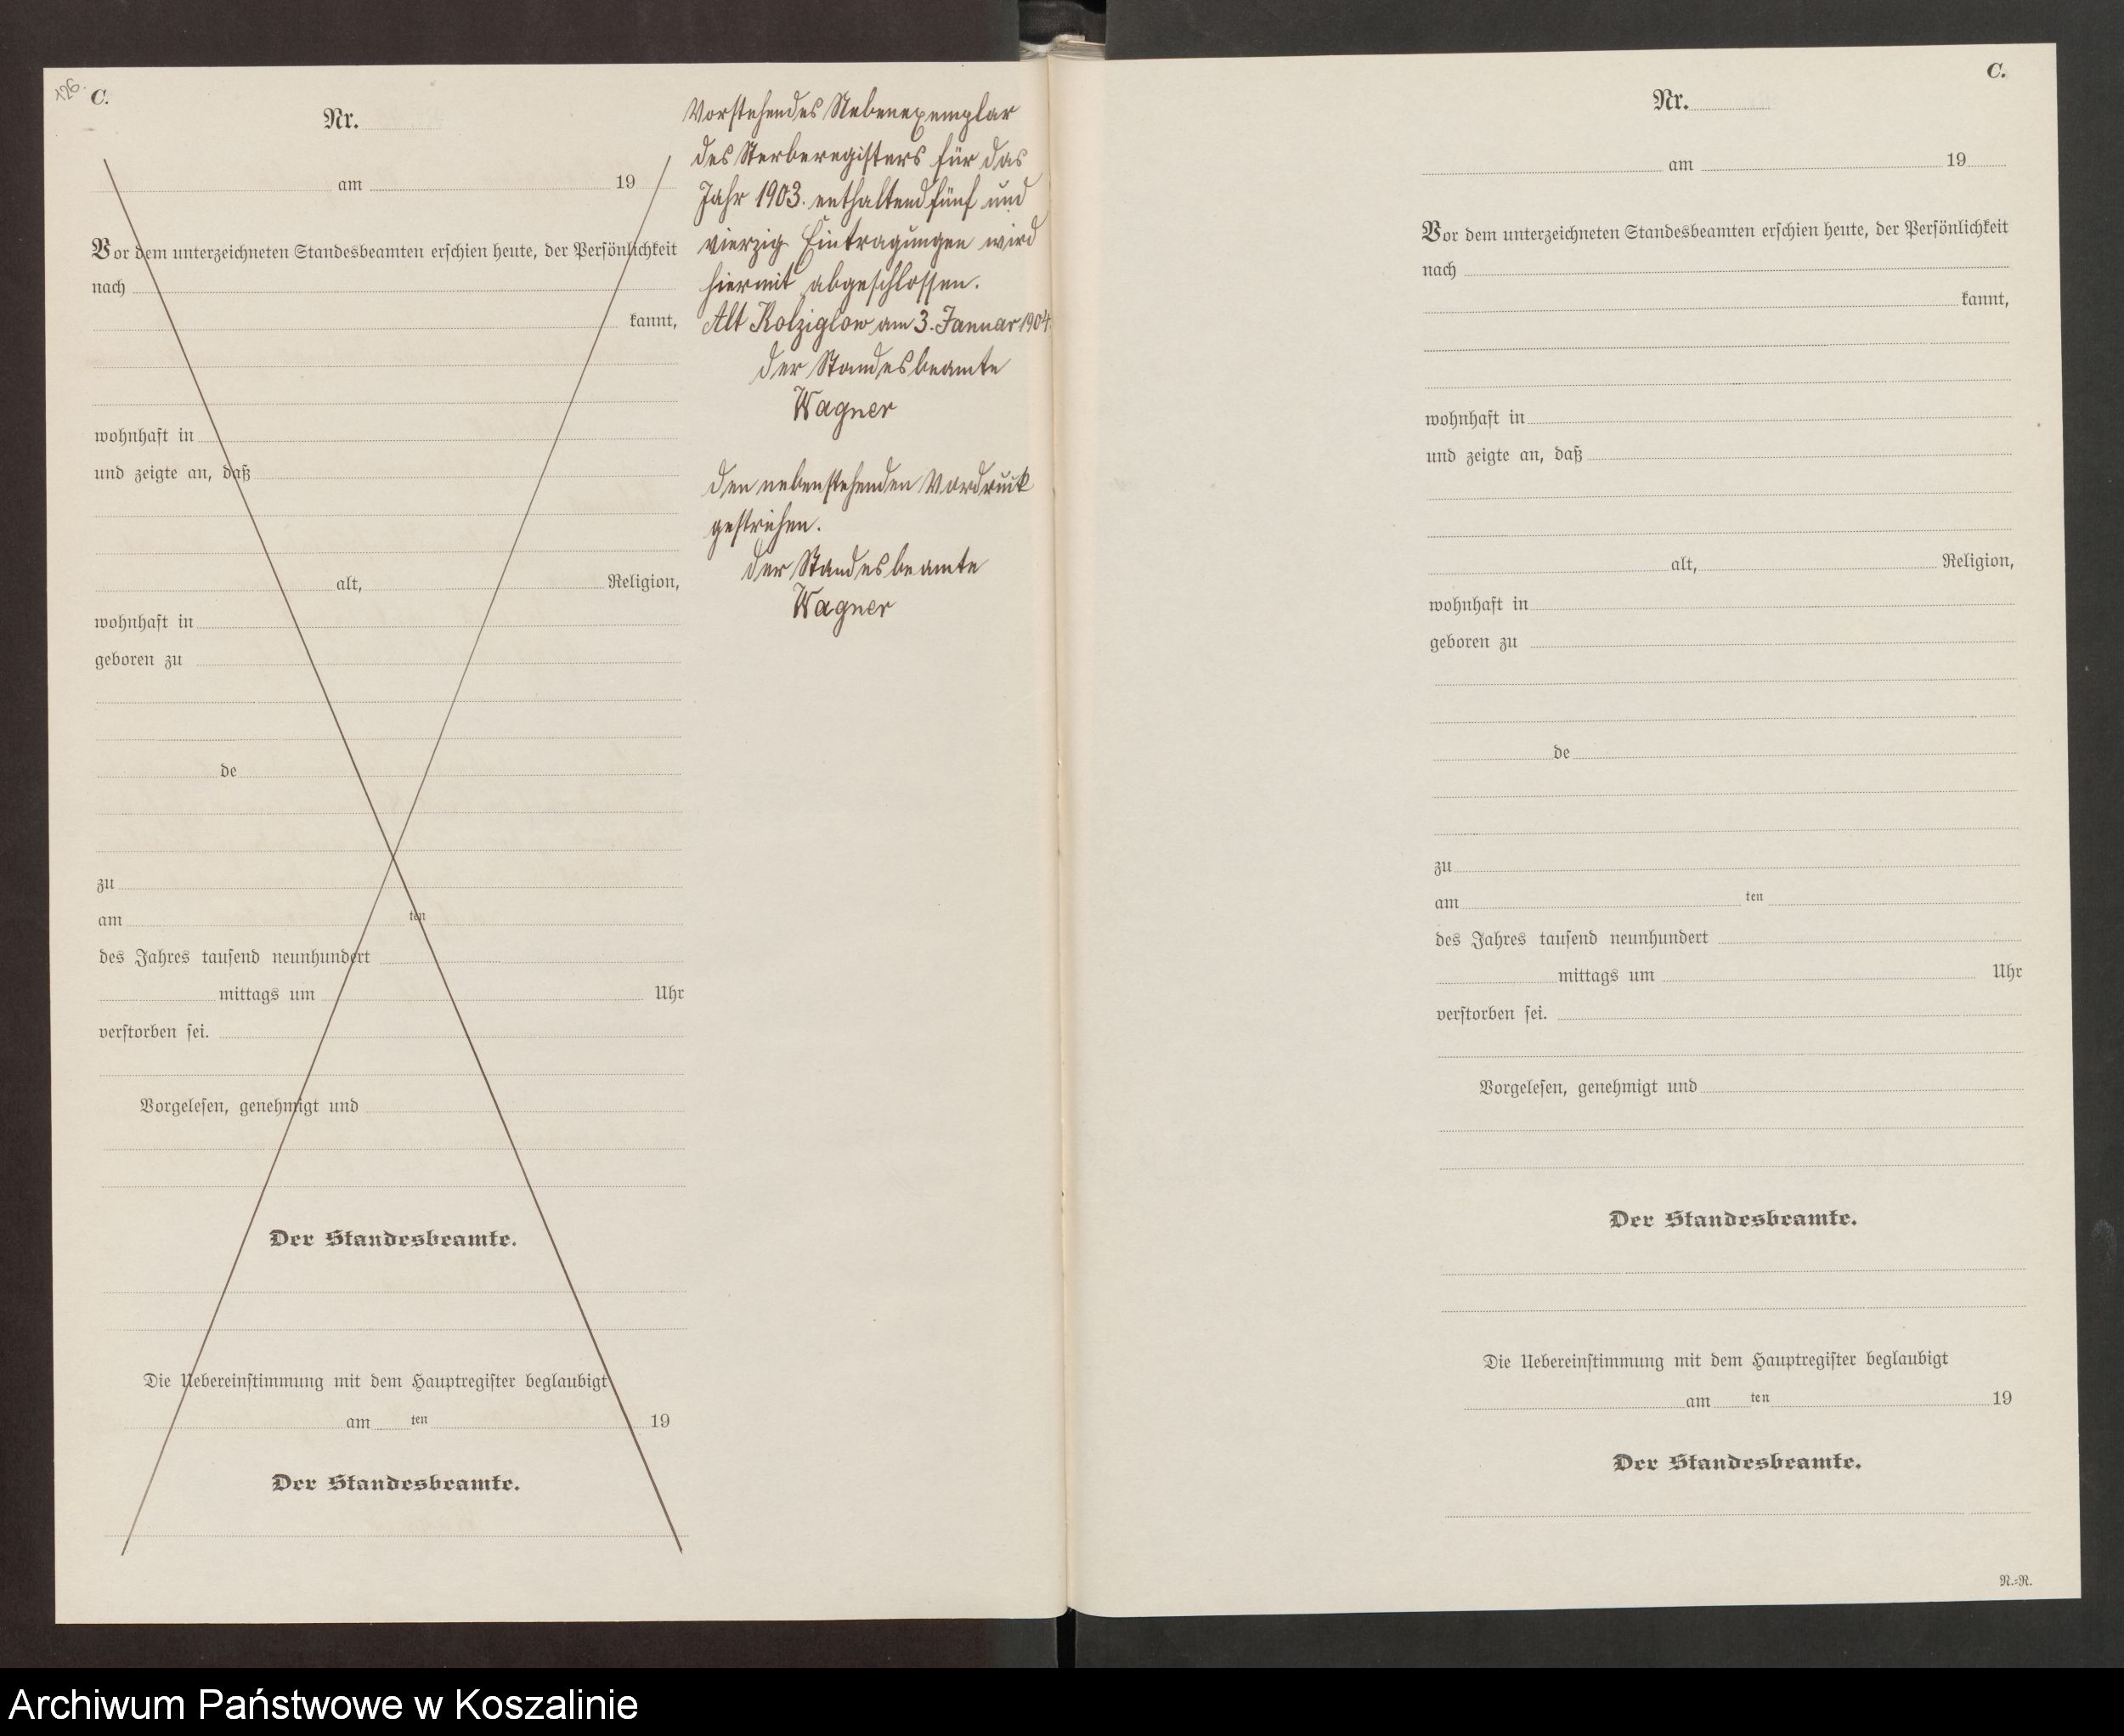 126.
C.
Nr.
am 19
Vor dem unterzeichneten Standesbeamten erschien heute, der Persönlichkeit
nach
kannt,
wohnhaft in
und zeigte an, daß
alt, Religion,
wohnhaft in
geboren zu
de
zu
am ten
des Jahres tausend neunhundert
mittags um Uhr
verstorben sei.
Vorgelesen, genehmigt und
Der Standesbeamte.
Die Uebereinstimmung mit dem Hauptregister beglaubigt
am ten 19
Der Standesbeamte.
Vorstehendes Nebenexemplar
des Sterberegisters für das
Jahr 1903. enthaltend fünf und
vierzig Eintragungen wird
hiermit abgeschlossen.
Alt Kolziglow am 3. Januar 1904.
der Standesbeamte
Wagner
den nebenstehenden Vordruck
gestrichen.
der Standesbeamte
Wagner
C.
Nr.
am 19
Vor dem unterzeichneten Standesbeamten erschien heute, der Persönlichkeit
nach
kannt,
wohnhaft in
und zeigte an, daß
alt, Religion,
wohnhaft in
geboren zu
de
zu
am ten
des Jahres tausend neunhundert
mittags um Uhr
verstorben sei.
Vorgelesen, genehmigt und
Der Standesbeamte.
Die Uebereinstimmung mit dem Hauptregister beglaubigt
am ten 19
Der Standesbeamte.
N.=R.
Archiwum Państwowe w Koszalinie